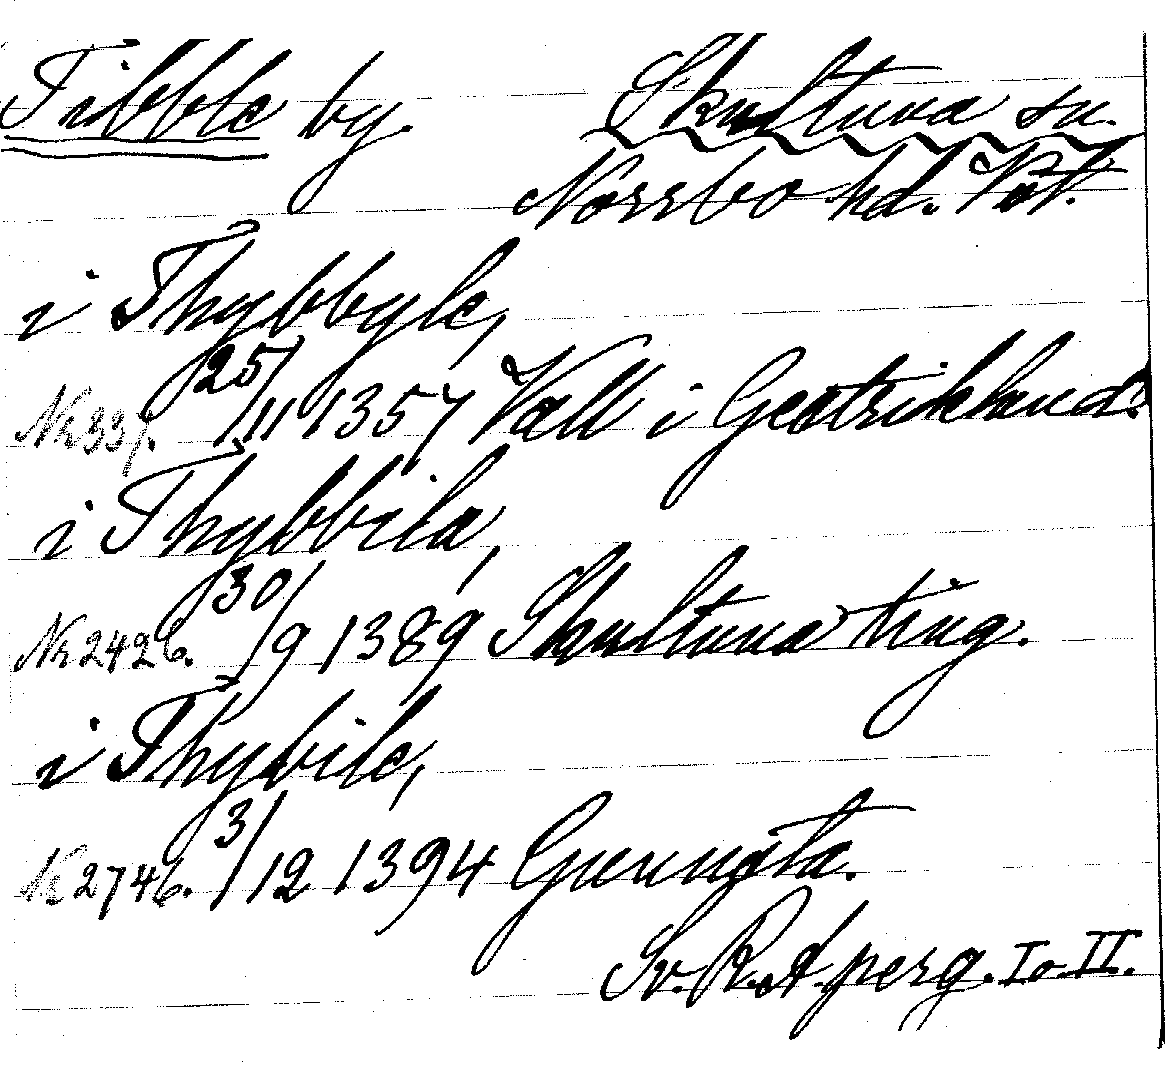 Tibble by. Skultuna sn.
Norrbo hd. Vstl.
i Thybbyle,
Nr 337. 25/11 1357 Vall i Gestrikland.
i Thybbila,
Nr 2426. 30/9 1389 Skultuna ting.
i Thybile,
Nr 2746. 3/12 1394 Grenngta.
Sv. R. A. perg. I o. II.